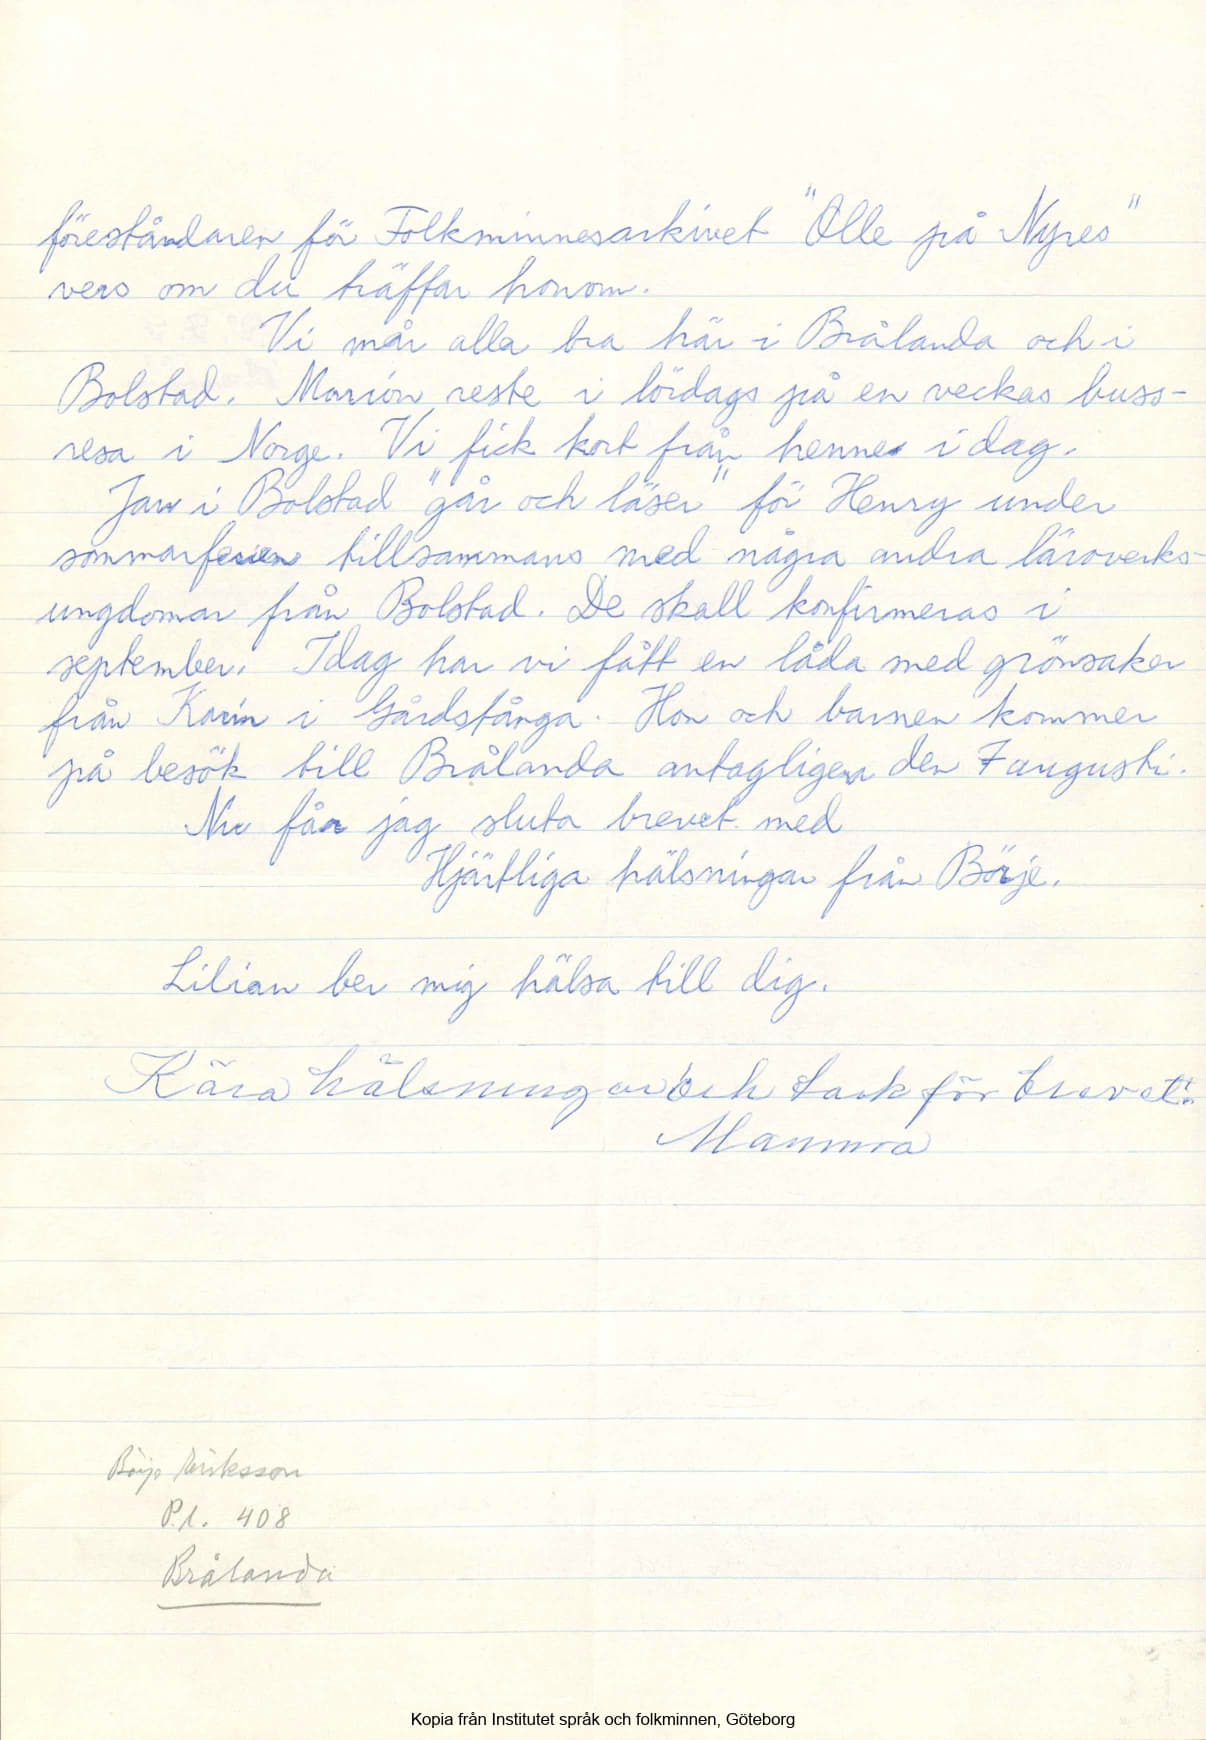 föreståndaren för Folkminnesarkivet "Olle på Nyres"
vers om du träffar honom.
Vi mår alla bra här i Brålanda och i
Bolstad. Marion reste i lördags på en veckas buss-
resa i Norge. Vi fick kort från henne idag.
Jan i Bolstad "går och läser" för Henry under
sommarferien tillsammans med några andra läroverks-
ungdomar från Bolstad. De skall konfirmeras i
september. Idag har vi fått en låda med grönsaker
från Karin i Gårdstånga. Hon och barnen kommer
på besök till Brålanda antagligen den 7 augusti.
Nu får jag sluta brevet med
Hjärtliga hälsningar från Börje.
Lilian ber mig hälsa till dig.
Kära hälsningar och tack för brevet.
Mamma
Börje Eriksson
P.l. 408
Brålanda
Kopia från Institutet språk och folkminnen, Göteborg